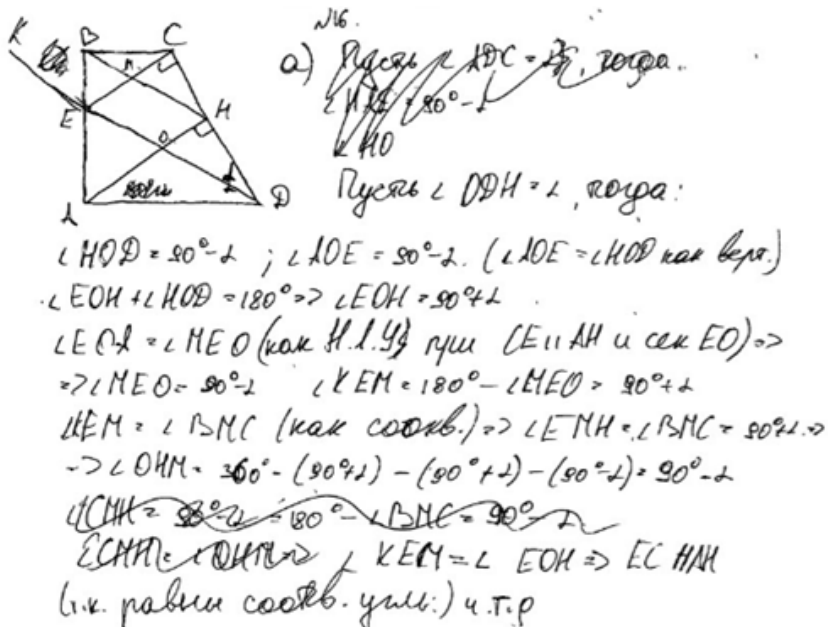 N16.
K B C
а) Пусть ∠ ADC = , тогда
M
∠HAE = 90°-α
E H
∠HO
O
Пусть ∠ ODH = α, тогда:
A D
∠HOD = 90°-α ; ∠AOE = 90°-α. (∠AOE = ∠HOD как верт.)
∠EOH + ∠HOD = 180° => ∠EOH = 90°+α
∠EOA = ∠MEO (как Н.Л.У) при CE || AH и сек EO) =>
=> ∠MEO = 90°-α ∠KEM = 180° - ∠MEO = 90°+α
∠KEM = ∠BMC (как соотв.) => ∠EMH = ∠BMC = 90°+α =>
-> ∠OHM = 360° - (90°+α) - (90°+α) - (90°-α) = 90°-α
∠CMH = 90°-α = 180° - ∠BMC = 90°-α
∠CMH = ∠OHM => ∠ KEM = ∠ EOH => EC HAH
(т.к. равны соотв. углы:) ч.т.д